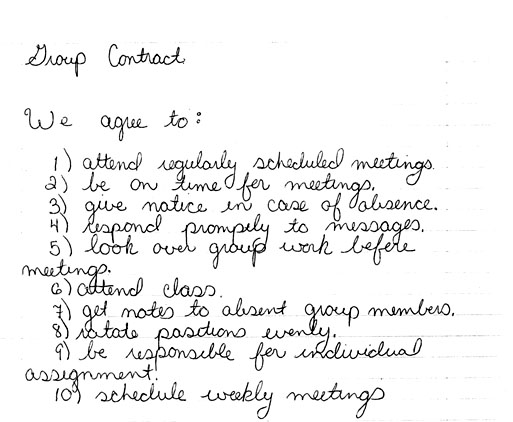 Group Contract
We agree to:
1) attend regularly scheduled meetings.
2) be on time for meetings.
3) give notice in case of absence.
4) respond promptly to messages.
5) look over group work before
meetings.
6) attend class.
7) get notes to absent group members.
8) rotate positions evenly.
9) be responsible for individual
assignment.
10) schedule weekly meetings